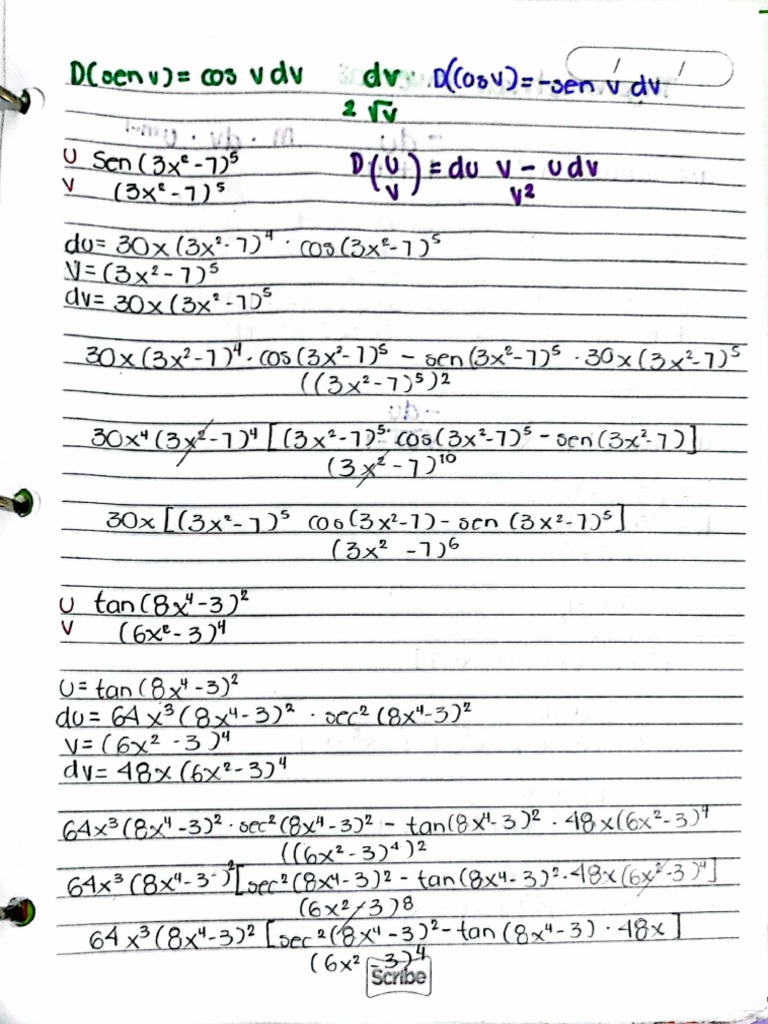 D(sen v) = cos v dv dv D(cos v) = -sen v dv
2 √v
U Sen (3x²-7)⁵ D(U/V) = du v - u dv
V (3x²-7)⁵ v²
du= 30x (3x²-7)⁴ · cos(3x²-7)⁵
V= (3x²-7)⁵
dv= 30x (3x²-7)⁵
30x (3x²-7)⁴ · cos(3x²-7)⁵ - sen (3x²-7)⁵ · 30x (3x²-7)⁵
((3x²-7)⁵)²
30x⁴ (3x²-7)⁴ [(3x²-7)⁵· cos(3x²-7)⁵ - sen(3x²-7)]
(3x²-7)¹⁰
30x [(3x²-7)⁵ cos(3x²-7) - sen (3x²-7)⁵]
(3x² -7)⁶
U tan(8x⁴-3)²
V (6x²-3)⁴
U= tan (8x⁴-3)²
du= 64x³(8x⁴-3)² · sec²(8x⁴-3)²
V= (6x² -3)⁴
dv= 48x (6x²-3)⁴
64x³(8x⁴-3)² · sec²(8x⁴-3)² - tan(8x⁴-3)² · 48x(6x²-3)⁴
((6x²-3)⁴)²
64x³ (8x⁴-3)²[sec²(8x⁴-3)² - tan(8x⁴-3)²·48x(6x²-3)⁴]
(6x²-3)⁸
64x³(8x⁴-3)² [sec²(8x⁴-3)² - tan (8x⁴-3) · 48x]
(6x²-3)⁴
Scribe